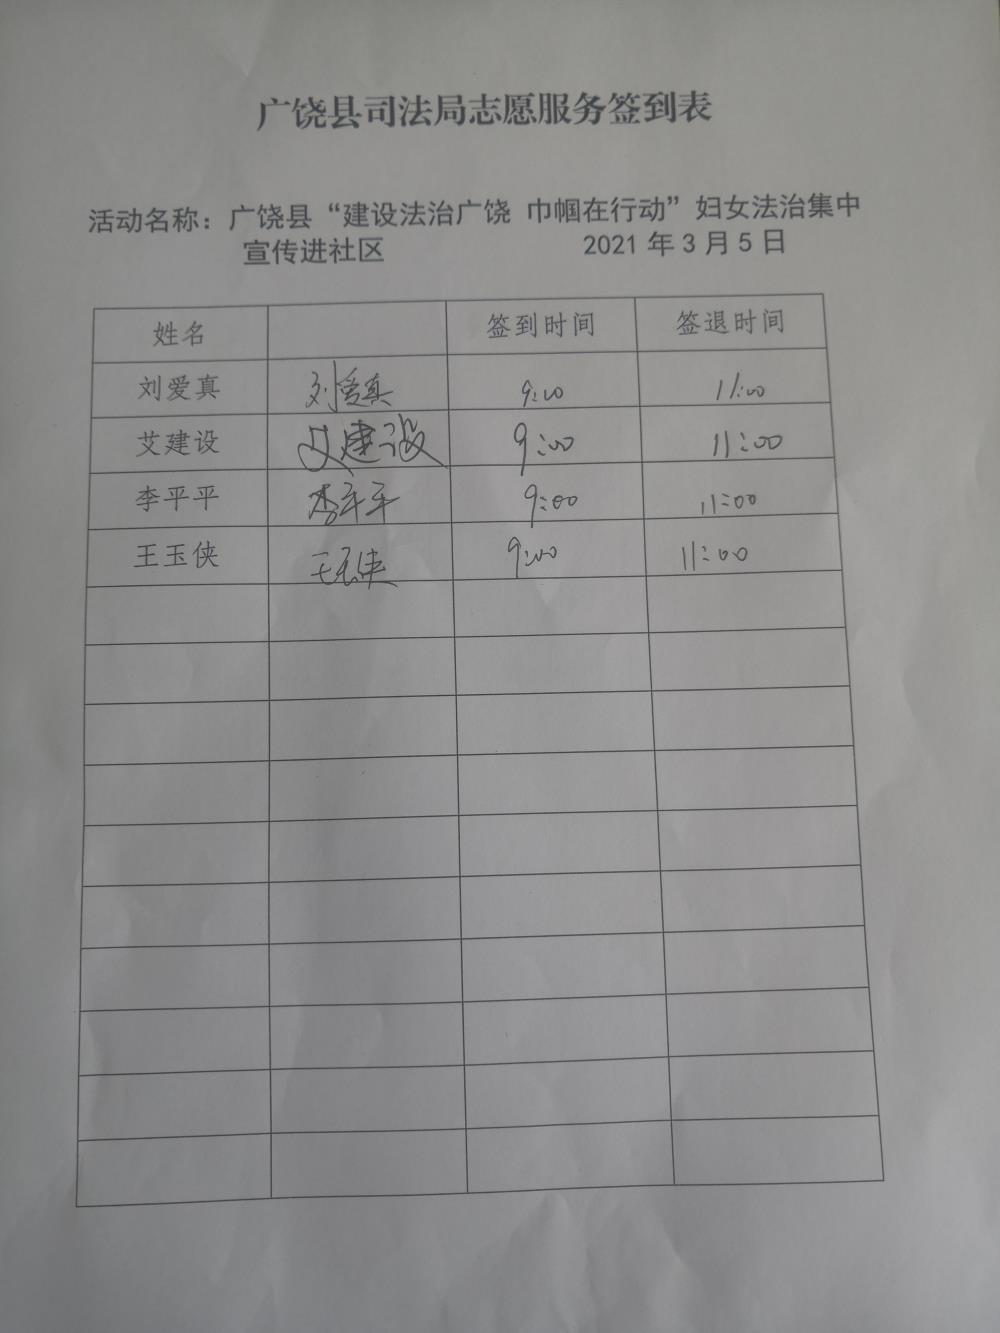 广饶县司法局志愿服务签到表
活动名称：广饶县“建设法治广饶 巾帼在行动”妇女法治集中
宣传进社区 2021年3月5日
姓名 签到时间 签退时间
刘爱真 刘爱真 9:00 11:00
艾建设 艾建设 9:00 11:00
李平平 李平平 9:00 11:00
王玉侠 王玉侠 9:00 11:00